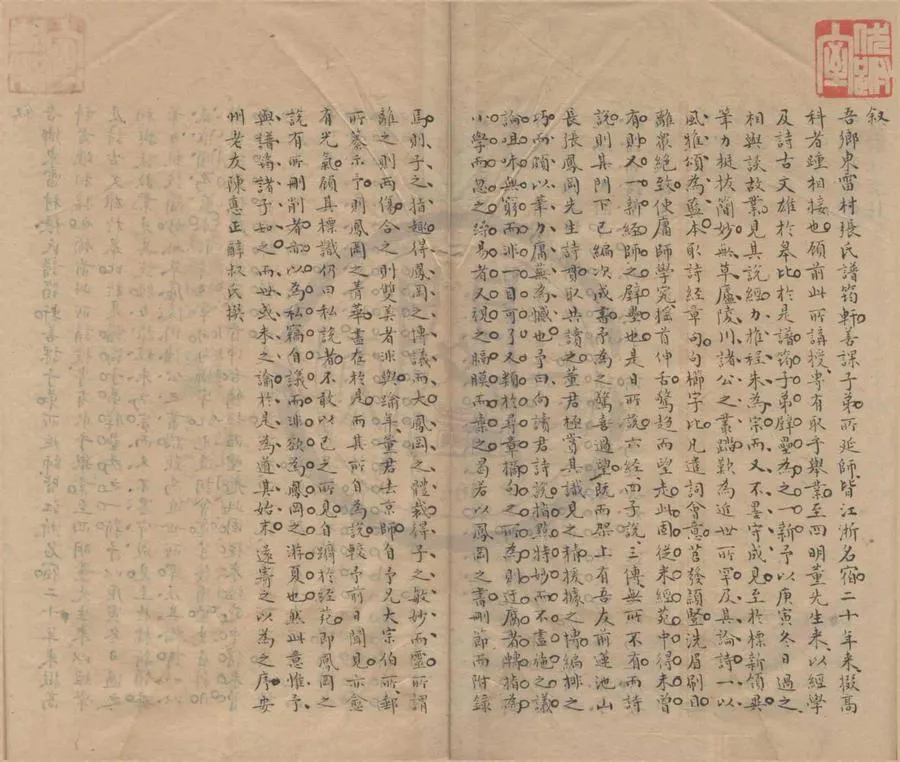 叙
吾鄉東雷村張氏譜筠軒善課子弟所延師皆江浙名宿二十年來掇髙
科者踵相接也顧前此所講授専有取乎舉業至四明董先生来以經學
及詩古文雄於皋比於是譜筠子弟壁壘為之一新予以庚寅冬日過之
相與談故業見其說經力推程朱為宗而又不墨守成見至於標新領異
筆力挺拔簡妙無草廬陵川諸公之叢蹋歎為近世所罕及其論詩一以
風雅頌為藍本取詩經章句句櫛字比凡遣詞會意苕發穎豎洗眉刷目
離衆絶致使庸師學究捨首伸舌驚趋而望走此固從来經苑中得未曽
有則又一新經師之壁壘也是日所說六經四子說三傳無所不有而詩
說則其門下已編次成書予為之驚喜過望既而架上有吾友前蓮池山
長張鳳岡先生詩貫取共讀之董君極賞其識見之精援據之博編排之
巧而頗以筆力庸蕪為憾也予曰向讀君詩說指點特妙而不盡他之議
論咀味無窮而非一目可了又頼於尋章摘句之所為則迂腐者將指為
小學而忽之踈易者又視之膈膜而棄之曷若以鳳岡之書刪節而附錄
馬則子之指趣得鳳岡之傳議而大鳳岡之體裁得子之敏妙而靈所謂
離之則兩傷合之則雙美者非與踰年董君去京師自予兄大宗伯所郵
所纂示予則鳳岡之菁華盡在於是而其所自為說較予前日聞見亦愈
有光氣顧其標識仍曰私說者不敢以已之所見自躋於經苑即鳳岡之
說有所刪削者亦以為私竊自議而非欲為鳳岡之游夏也然此意惟予
與譜筠諸子知之而世或未之諭於是為道其始末遂寄之以為之序安
州老友陳惪正醇叔氏撰